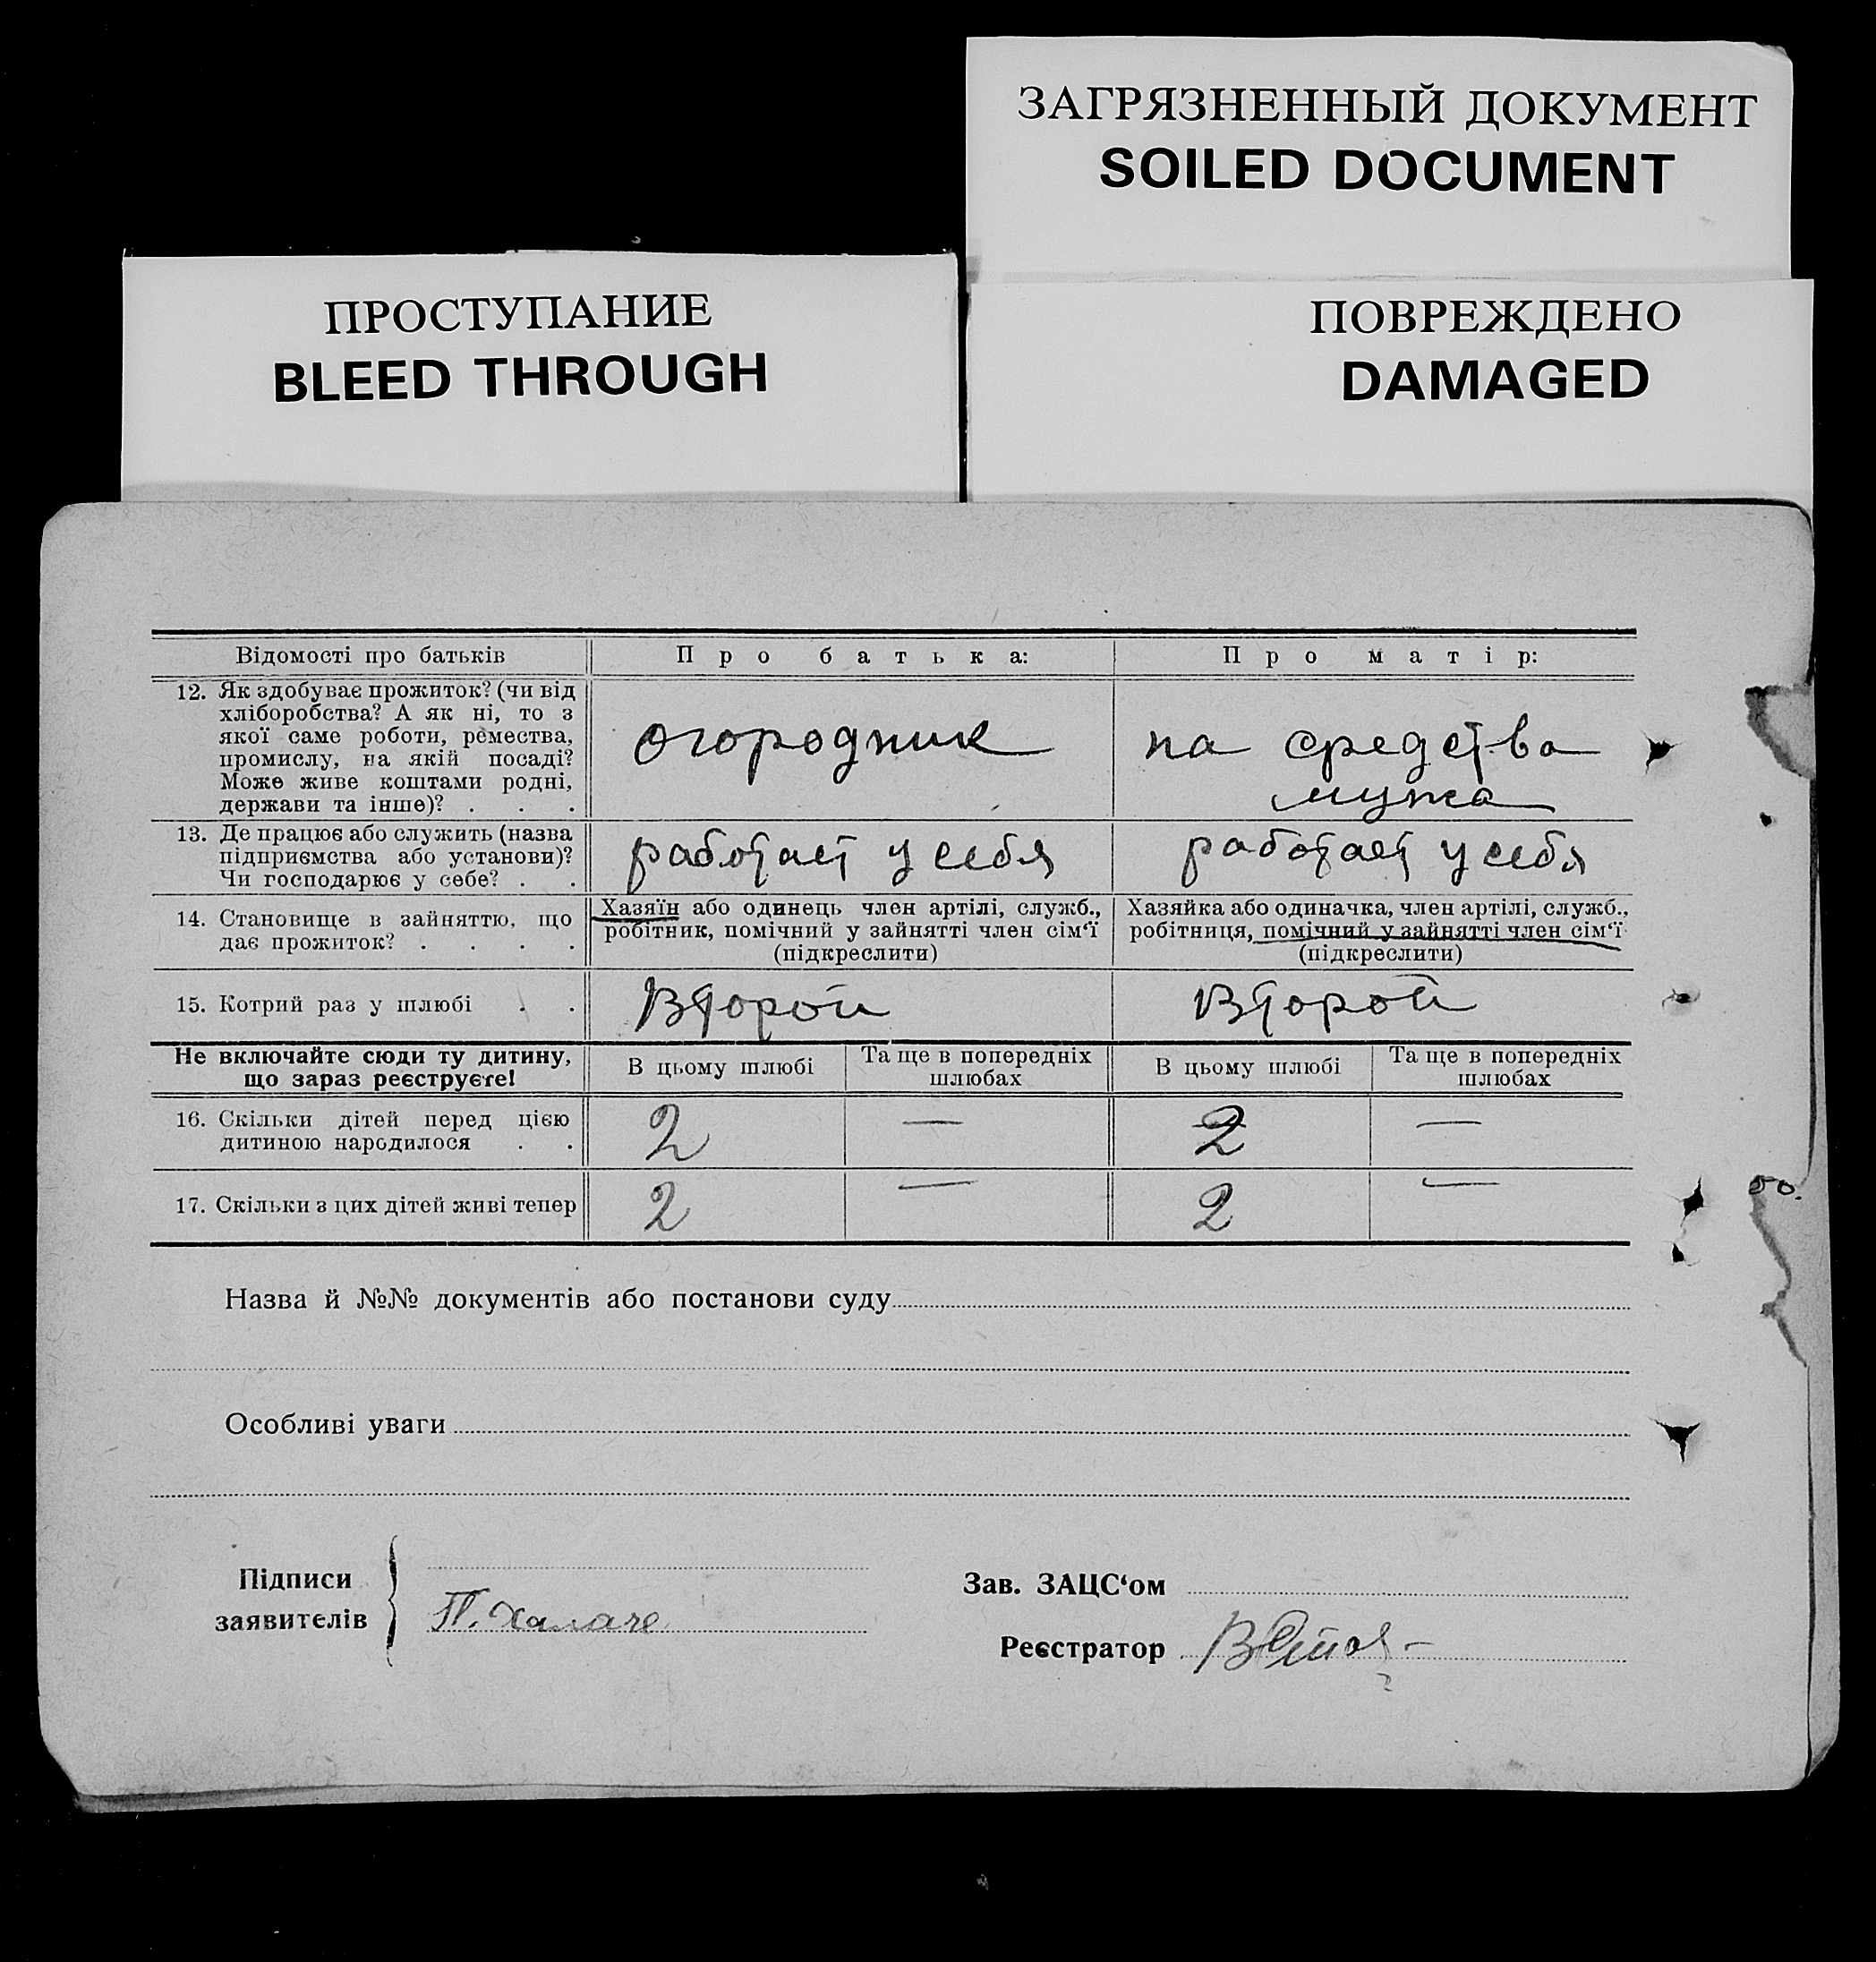 ЗАГРЯЗНЕННЫЙ ДОКУМЕНТ
SOILED DOCUMENT
ПРОСТУПАНИЕ
BLEED THROUGH
ПОВРЕЖДЕНО
DAMAGED
Відомості про батьків Про батька: Про матір:
12. Як здобуває прожиток? (чи від
хліборобства? А як ні, то з
якої саме роботи, ремества,
промислу, на якій посаді?
Може живе коштами родні,
держави та інше)? . . .
огородник
на средства
мужа
13. Де працює або служить (назва
підприємства або установи)?
Чи господарює у себе? . .
работает у себя
работает у себя
14. Становище в зайняттю, що
дає прожиток? . . . .
Хазяїн або одинець член артілі, служб.,
робітник, помічний у зайнятті член сім‘ї
(підкреслити)
Хазяйка або одиначка, член артілі, служб.,
робітниця, помічний у зайнятті член сім‘ї
(підкреслити)
15. Котрий раз у шлюбі . .
Второй
Второй
Не включайте сюди ту дитину,
що зараз реєструєте!
В цьому шлюбі
Та ще в попередніх
шлюбах
В цьому шлюбі
Та ще в попередніх
шлюбах
16. Скільки дітей перед цією
дитиною народилося . .
2 — 2 —
17. Скільки з цих дітей живі тепер
2 — 2 —
Назва й №№ документів або постанови суду
Особливі уваги
Підписи
заявителів
Зав. ЗАЦС‘ом
Реєстратор